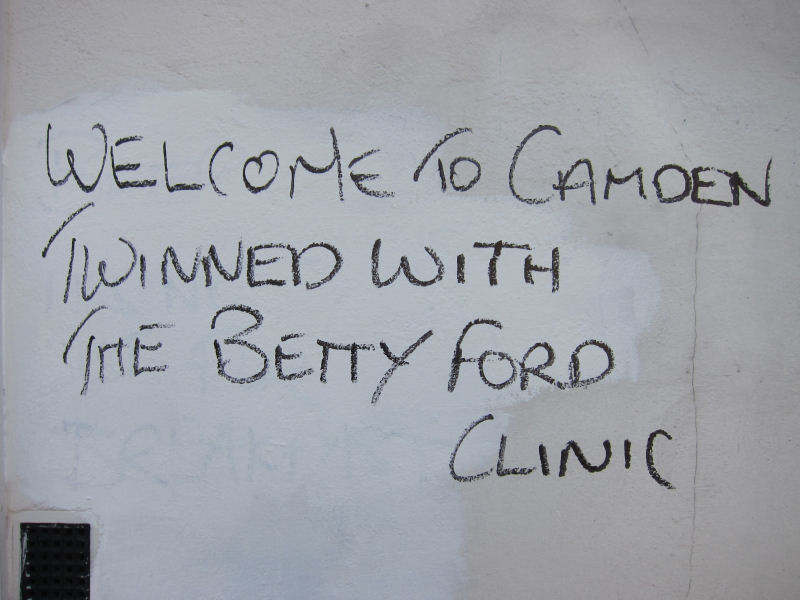 WELCOME TO CAMDEN
TWINNED WITH
THE BETTY FORD
CLINIC